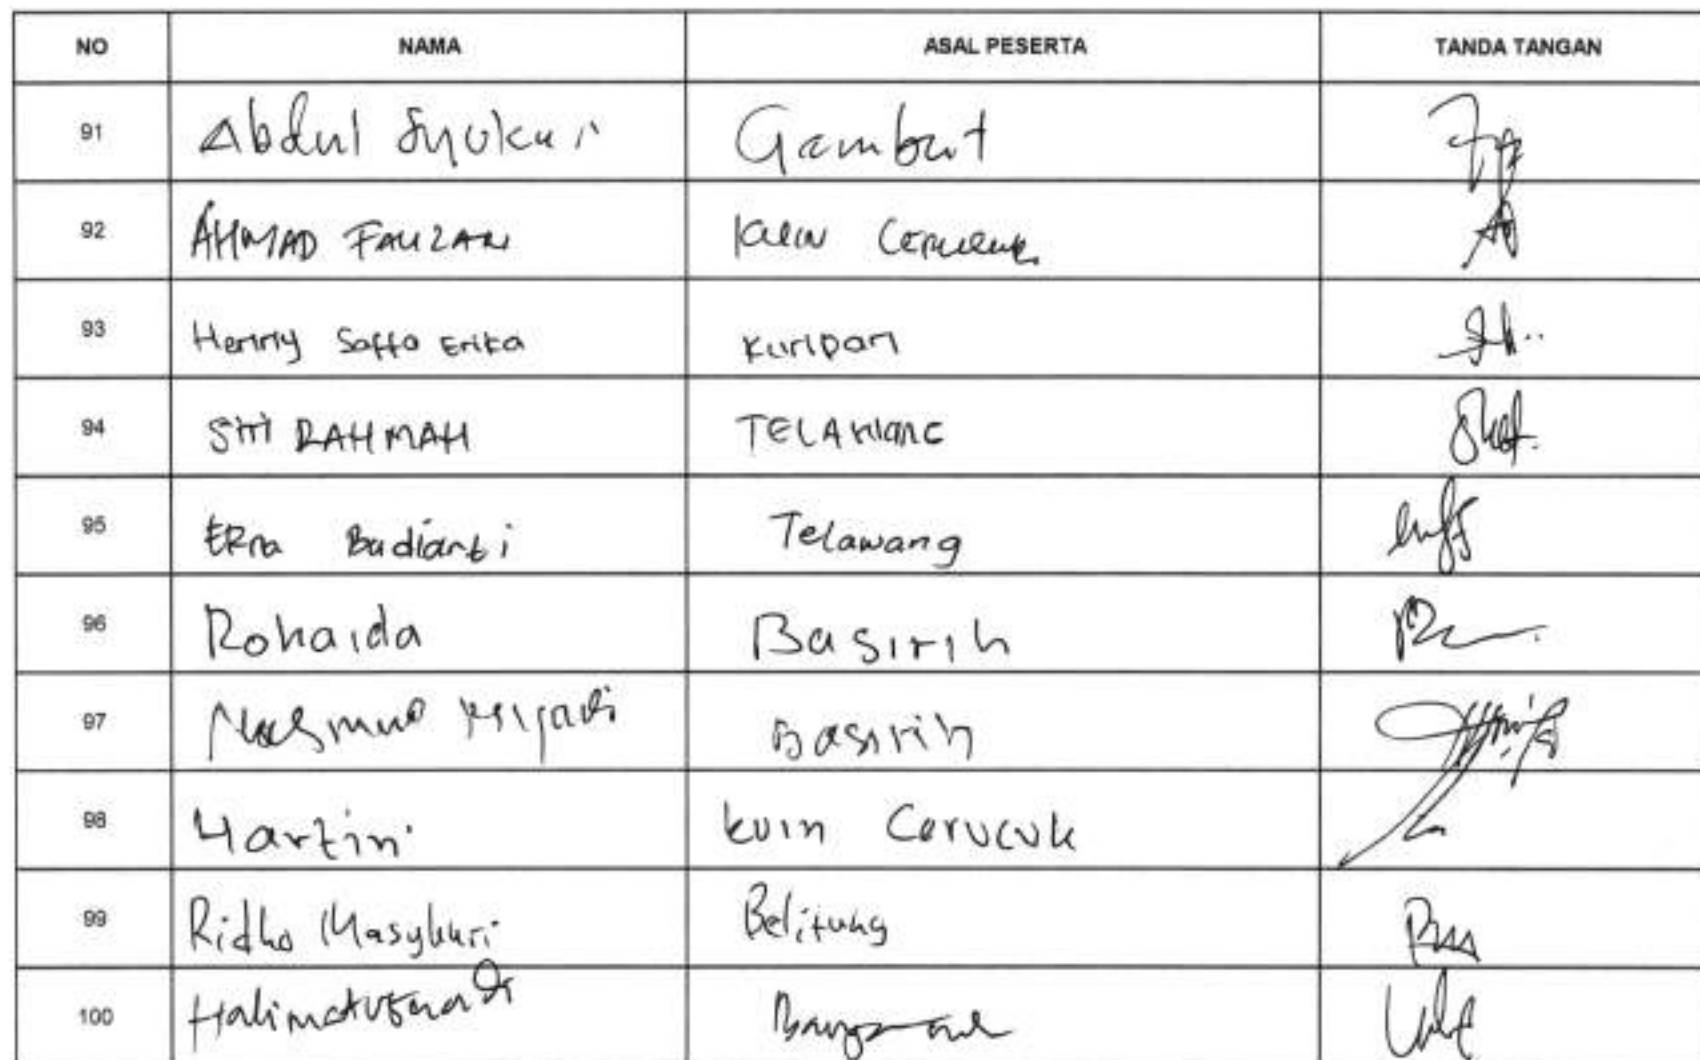 NO NAMA ASAL PESERTA TANDA TANGAN
91 Abdul Syukur Gambut
92 AHMAD FAUZAN Kuin Cerucuk
93 Henny Saffa Erika Kuripan
94 SITI RAHMAH TELAWANG
95 ERna Budianti Telawang
96 Rohaida Basirih
97 Basirih
98 Hartini kuin Cerucuk
99 Ridho Masykuri Belitung
100